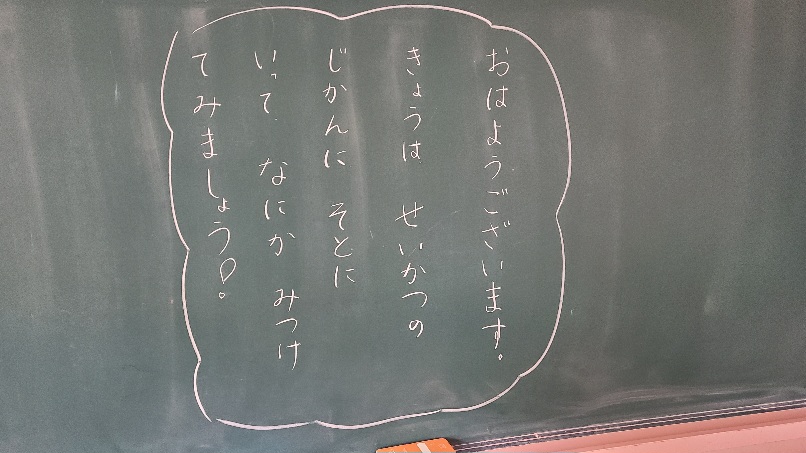 おはようございます。
きょうは　せいかつの
じかんに　そとに
いって　なにか　みつけ
てみましょう!